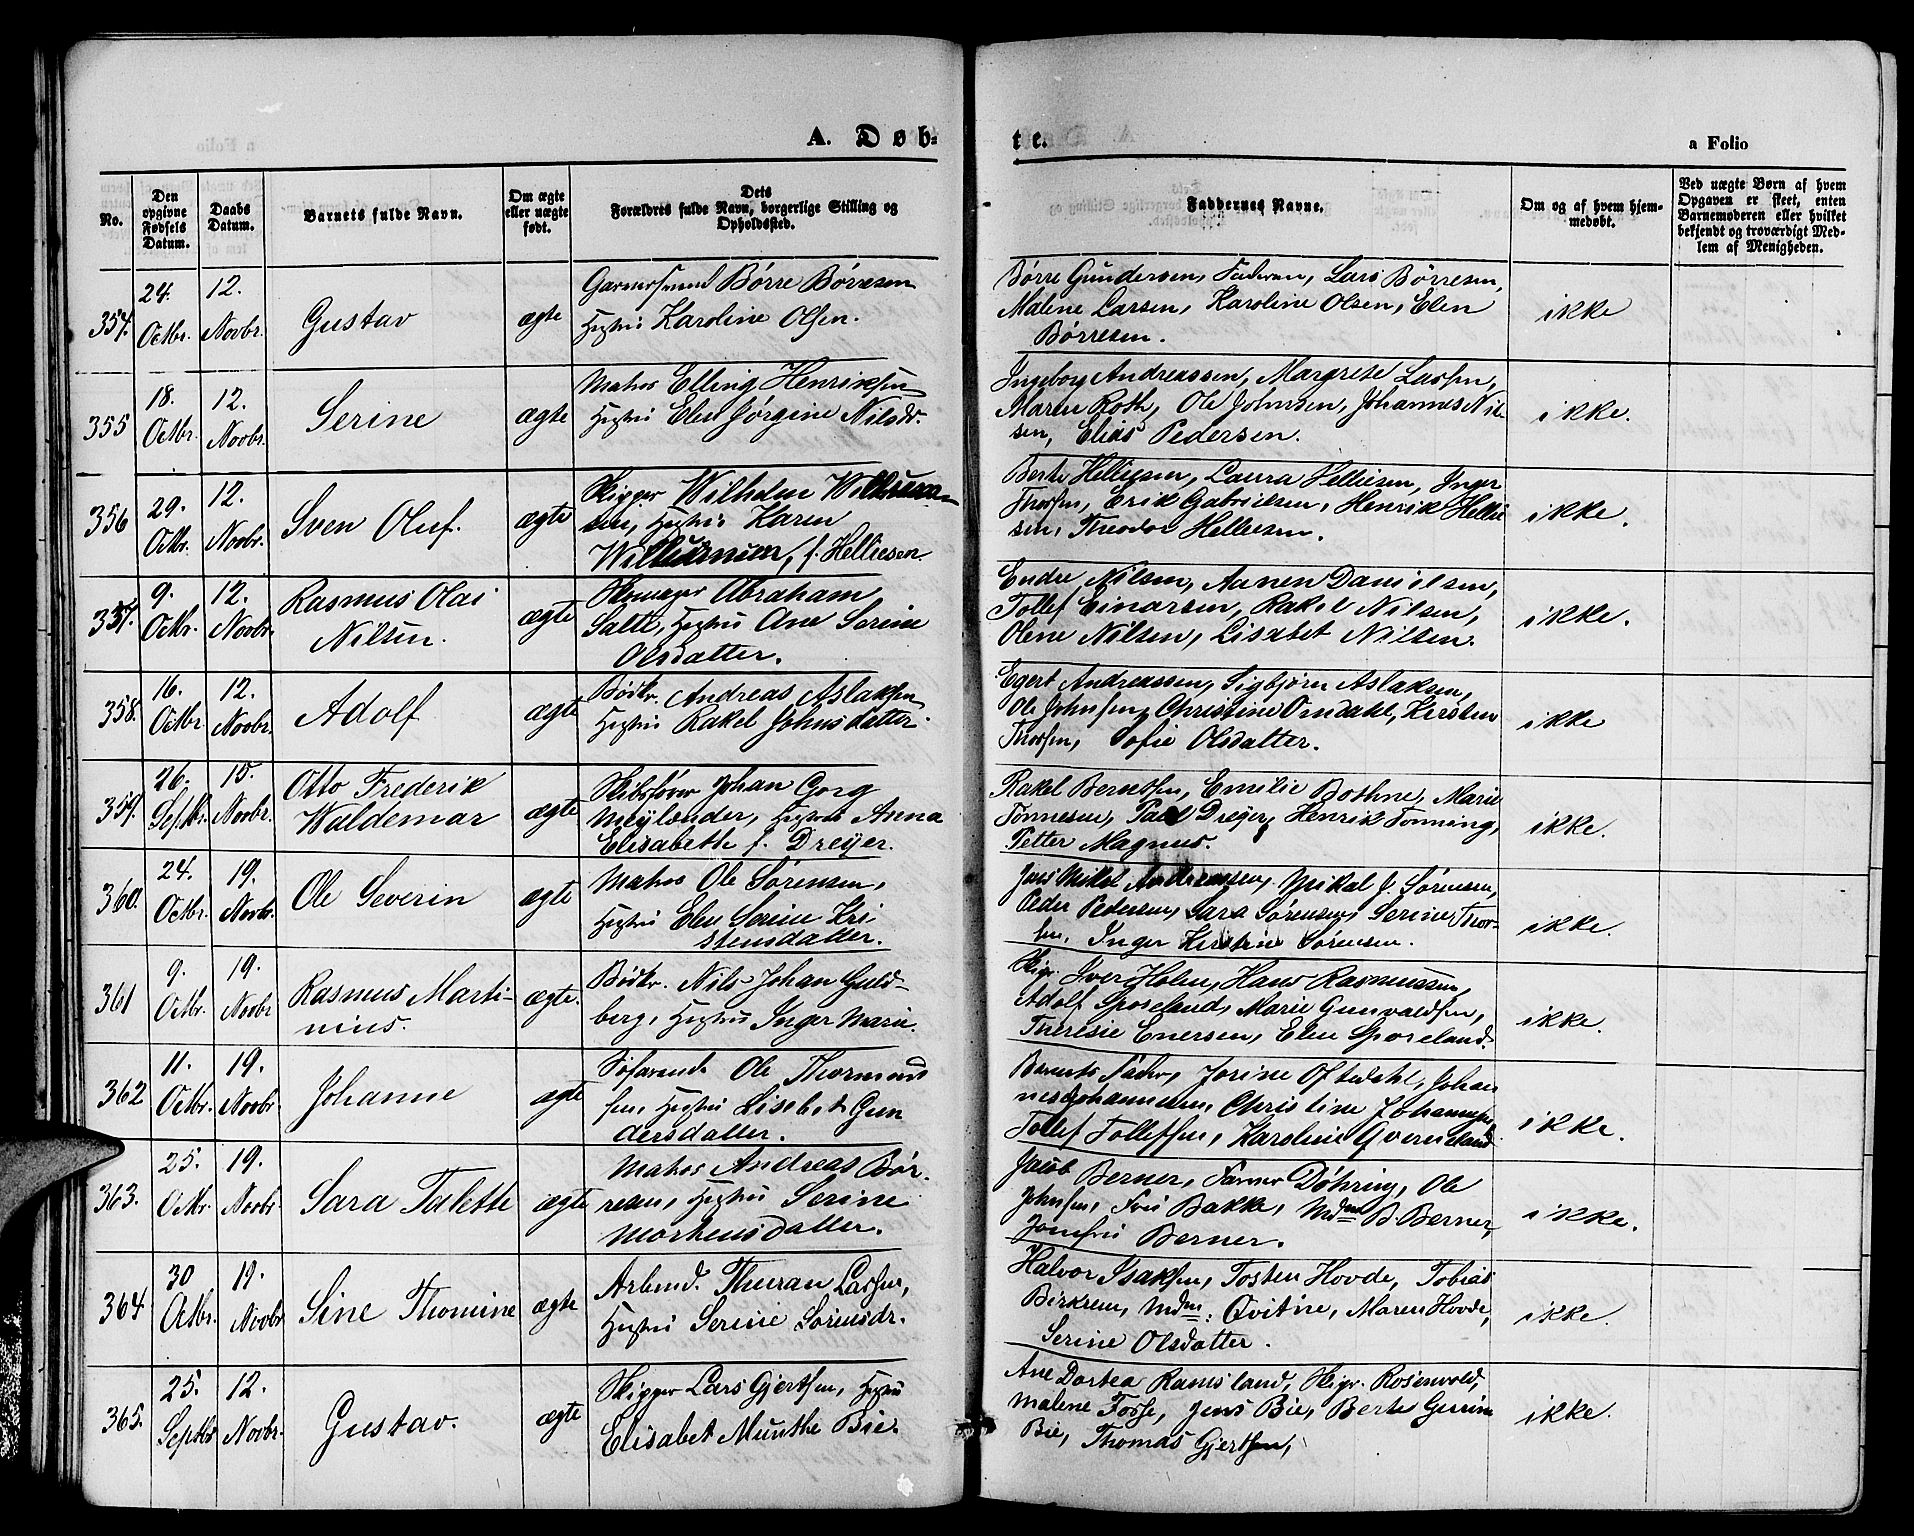 A. Døb-
te.
a Folio
No.
Den opgivne Fødsels Datum.
Daabs Datum.
Barnets fulde Navn.
Om ægte eller uægte født.
Dets Forældres fulde Navn, borgerlige Stilling og Opholdssted.
Faddernes Navne.
Om og af hvem hjem-
medøbt.
Ved uægte Børn af hvem
Opgaven er skeet, enten
Barnemoderen eller hvilket
bekjendt og troværdigt Med-
lem af Menigheden.
354.
24. Octbr.
12. Novbr.
Gustav
ægte
Børre Børresen
Hustru Karoline Olsen.
Børre Gundersen, Faderen, Lars Børresen,
Malene Larsen, Karoline Olsen, Elen
Børresen.
ikke
355
18. Octbr.
12. Novbr.
Serine
ægte
Matros Elling Henriksen
Hustru Elen Jørgine Nilsdr.
Ingeborg Andreassen, Margrete Larsen,
Maren Roth, Ole Johnsen, Johannes Nil-
sen, Elias Pedersen.
ikke.
356
29. Octbr.
12. Novbr.
Sven Oluf.
ægte
Skipper Wilhelm
sen, Hustru Karen
f. Helliesen.
Berte Helliesen, Laura Helliesen, Inger
Thorsen, Erik Gabrielsen, Henrik Hellie
sen, Theodor Helliesen.
ikke.
357.
9. Octbr.
12. Novbr.
Rasmus Olai
Nilsen.
ægte
Skomager Abraham
Salte, Hustru Ane Serine
Olsdatter.
Endre Nilsen, Aanen Danielsen,
Tollef Einarsen, Rakel Nilsen,
Olene Nilsen, Lisabet Nilsen.
ikke.
358.
16. Octbr.
12. Novbr.
Adolf
ægte
Bødkr. Andreas Aslaksen
Hustru Rakel Johnsdatter.
Egert Andreassen, Sigbjørn Aslaksen,
Ole Johnsen, Christine Omdahl, Kirsten
Thorsen, Sofie Olsdatter.
ikke
359.
26. Septbr.
15. Novbr.
Otto Frederik
Waldemar
ægte
Skibsfører Johan Gorg
Meylender, Hustru Anna
Elisabeth f. Dreyer.
Rakel Berentsen, Emilie Bothne, Marie
Tønnesen, Paul Dreyer, Henrik Tonning,
Petter Magnus.
ikke.
360.
24. Octbr.
19. Novbr.
Ole Severin
ægte
Matros Ole Sørensen,
Hustru Elen Serine Kri
stensdatter.
Jens Mikal Andreassen, Mikal J. Sørensen,
Peder Pedersen, Sara Sørensen, Serine Thor-
sen, Inger Kirstine Sørensen.
ikke.
361
9. Octbr.
19. Novbr
Rasmus Marti-
nius.
ægte.
Bødkr. Nils Johan Guld-
berg, Hustru Inger Marie.
Skipr. Iver Holm, Hans Rasmussen,
Adolf Sporeland, Marie Gunvaldsen,
Theresie Enersen, Elen Sporeland.
ikke.
362
11. Octbr.
19. Novbr.
Johanne
ægte
Søfarende Ole Thormod
sen, Hustru Lisebet Gun
dersdatter.
Barnets Fader, Jorine Oftedahl, Johan
nes Johannesen, Christine Johannesen,
Tollef Tollefsen, Karoline Qverneland.
ikke.
363.
25. Octbr.
19. Novbr.
Sara Talette
ægte
Matros Andreas Bør-
resen, Hustru Serine
Mortensdatter.
Jacob Berner, Farver Døhring, Ole
Johnsen, Fru Bakke, Mdm B. Berner,
Jomfru Berner.
ikke.
364
30 Octbr.
19. Novbr
Sine Thomine
ægte
Arbmd. Thuran Larsen,
Hustru Serine Sørensdr.
Halvor Isaksen, Tosten Hovde, Tobias
Birkrem, Mdm: Qvitine, Maren Hovde,
Serine Olsdatter.
ikke.
365.
25. Septbr
12. Novbr.
Gustav.
ægte
Skipper Lars Gjertsen, Hustru
Elisabet Munthe Bie.
Ane Dortea Ramsland, Skipr. Rosenvold,
Malene Fosse, Jens Bie, Berte Gurine
Bie, Thomas Gjertsen,
ikke.